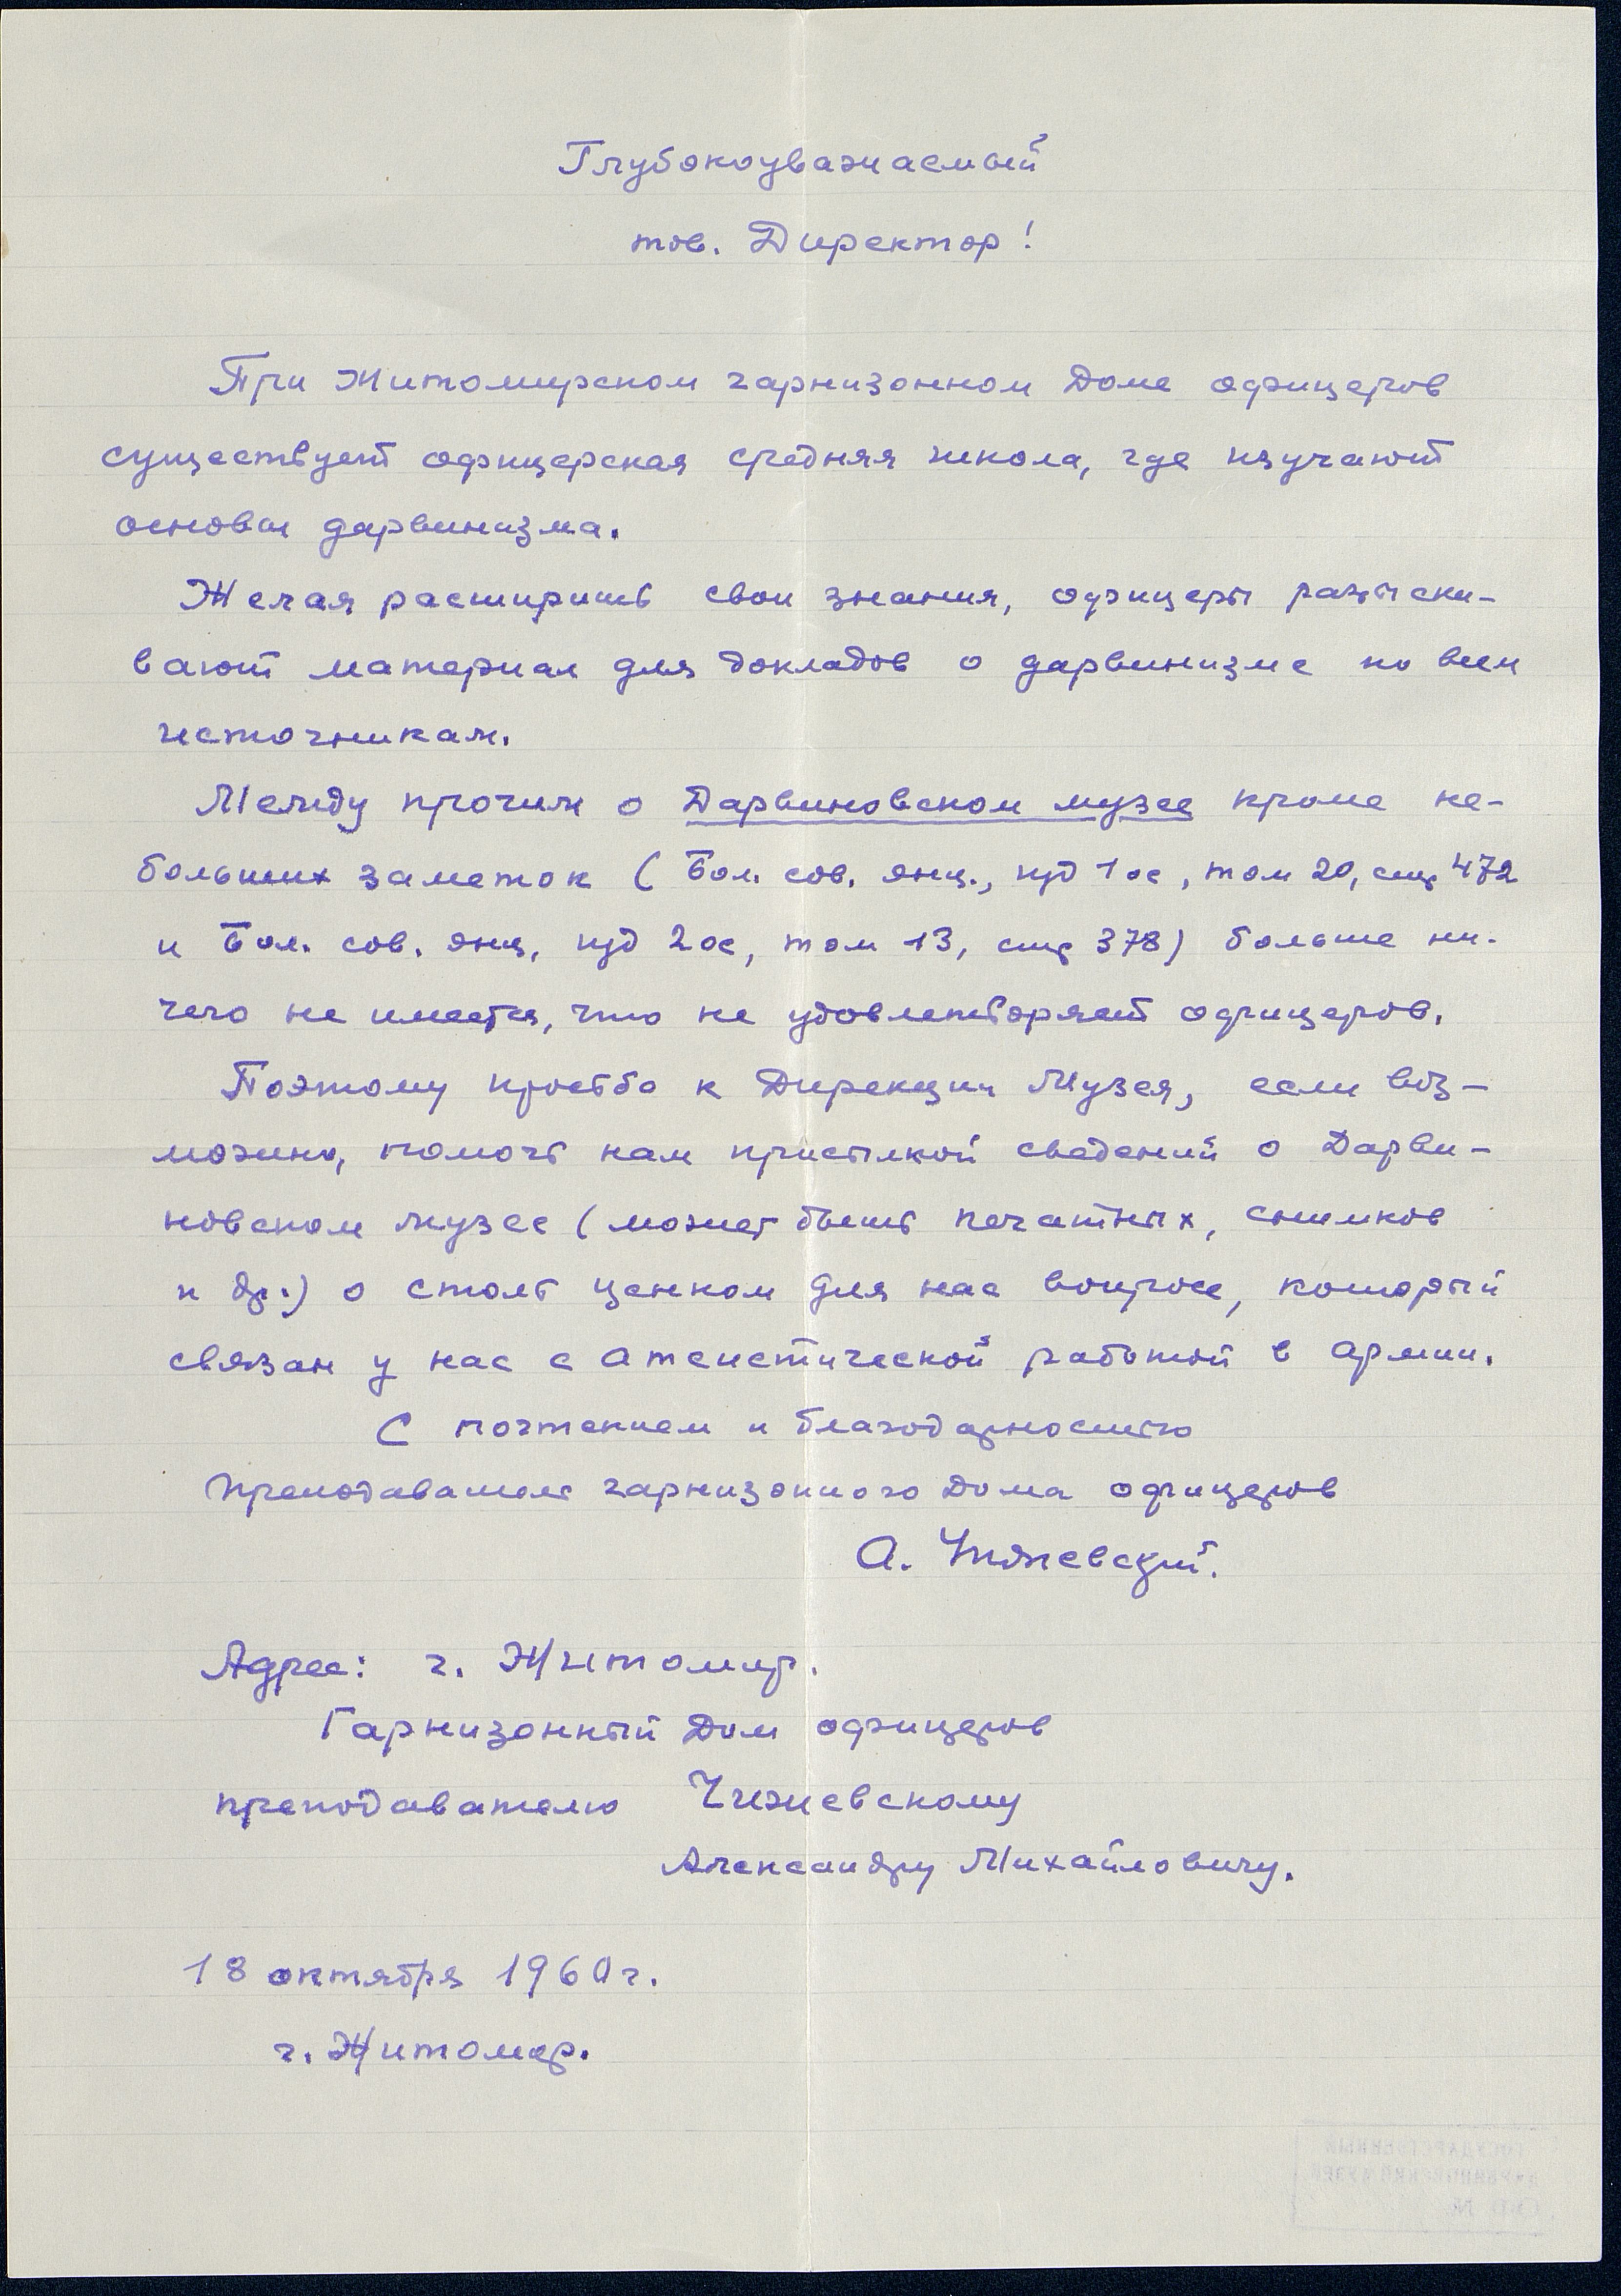 Глубокоуважаемый
тов. Директор!
При Житомирском гарнизонном Доме офицеров
существует офицерская средняя школа, где изучают
основы дарвинизма.
Желая расширить свои знания, офицеры разыски-
вают материал для докладов о дарвинизме по всем
источникам.
Между прочим о Дарвиновском музее кроме не-
больших заметок (Бол. сов. энц., изд 1ое, том 20, стр 472
и Бол. сов. энц, изд 2ое, том 13, стр 378) больше ни-
чего не имеется, что не удовлетворяет офицеров.
Поэтому просьба к Дирекции Музея, если воз-
можно, помочь нам присылкой сведений о Дарви-
новском музее (может быть печатных, снимков
и др.) о столь ценном для нас вопросе, который
связан у нас с атеистической работой в армии.
С почтением и благодарностью
Преподаватель гарнизонного Дома офицеров
А. Чижевский.
Адрес: г. Житомир.
Гарнизонный Дом офицеров
преподавателю Чижевскому
Александру Михайловичу.
18 октября 1960 г.
г. Житомир.
ГОСУДАРСТВЕННЫЙ
ДАРВИНОВСКИЙ МУЗЕЙ